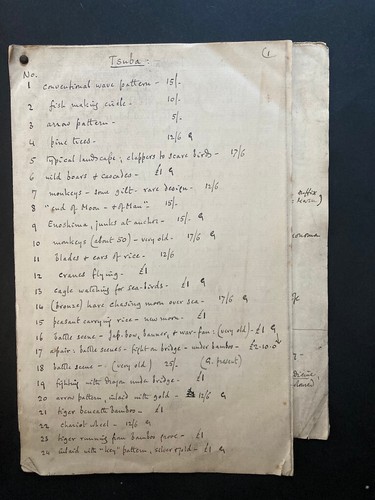 Tsuba :
(1
No.
1 conventional wave pattern - 15/-
2 fish making circle - 10/-
3 arrow pattern - 5/-
4 pine trees - 12/6 G
5 typical landscape; clappers to scare birds - 17/6
6 wild boars & cascades - £1 G
7 monkeys - some gilt - rare design - 12/6
8 "End of Moon - & of Man". 15/-
9 Enoshima, junks at anchor - 15/- G
10 monkeys (about 50) - very old - 17/6 G
11 blades & ears of rice - 12/6
12 cranes flying - £1
13 eagle watching for sea-birds - £1 G
14 (bronze) hare chasing moon over sea - 17/6 G
15 peasant carrying rice - new moon - £1
16 battle scene - Jap. bow, banner, & war-fan : (very old) - £1 G
17 a pair : battle scenes - fight on bridge - under bamboo - £2-10.0
18 battle scene - (very old) 25/- (G. present)
19 fighting with dragon under bridge - £1
20 arrow pattern, inlaid with gold - 12/6 G
21 tiger beneath bamboo - £1
22 chariot wheel - 12/6 G
23 tiger running from bamboo grove - £1
24 inlaid with "key" pattern, silver & gold - £1 G